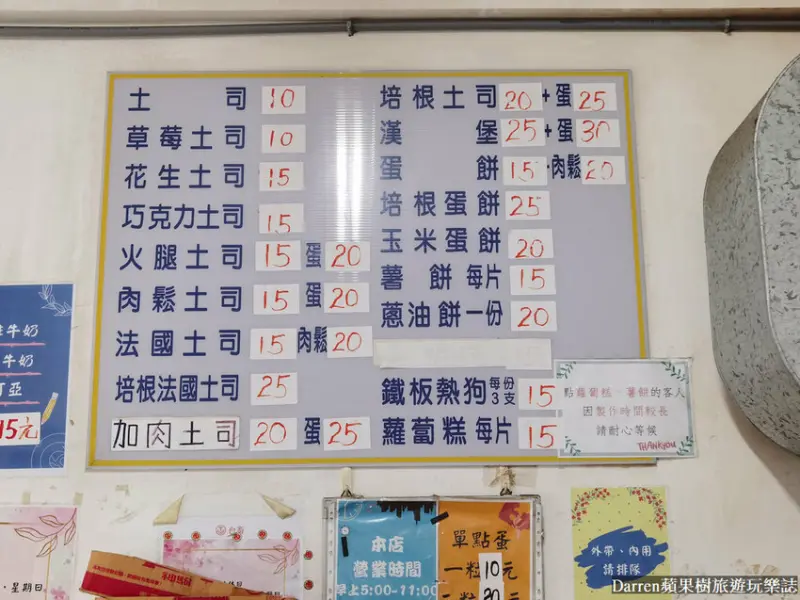 土司 10
草莓土司 10
花生土司 15
巧克力土司 15
火腿土司 15 蛋 20
肉鬆土司 15 蛋 20
法國土司 15 肉鬆 20
培根法國土司 25
加肉土司 20 蛋 25
培根土司 20 + 蛋 25
漢堡 25 + 蛋 30
蛋餅 15 肉鬆 20
培根蛋餅 25
玉米蛋餅 20
薯餅 每片 15
蔥油餅一份 20
鐵板熱狗 每份3支 15
蘿蔔糕 每片 15
點蘿蔔糕、薯餅的客人
因製作時間較長
請耐心等候
THANKYOU
牛奶
牛奶
亞
15元
本店
營業時間
早上5:00-11:00
單點蛋
一粒10元
20
外帶、內用
請排隊
、星期日
Darren蘋果樹旅遊玩樂誌